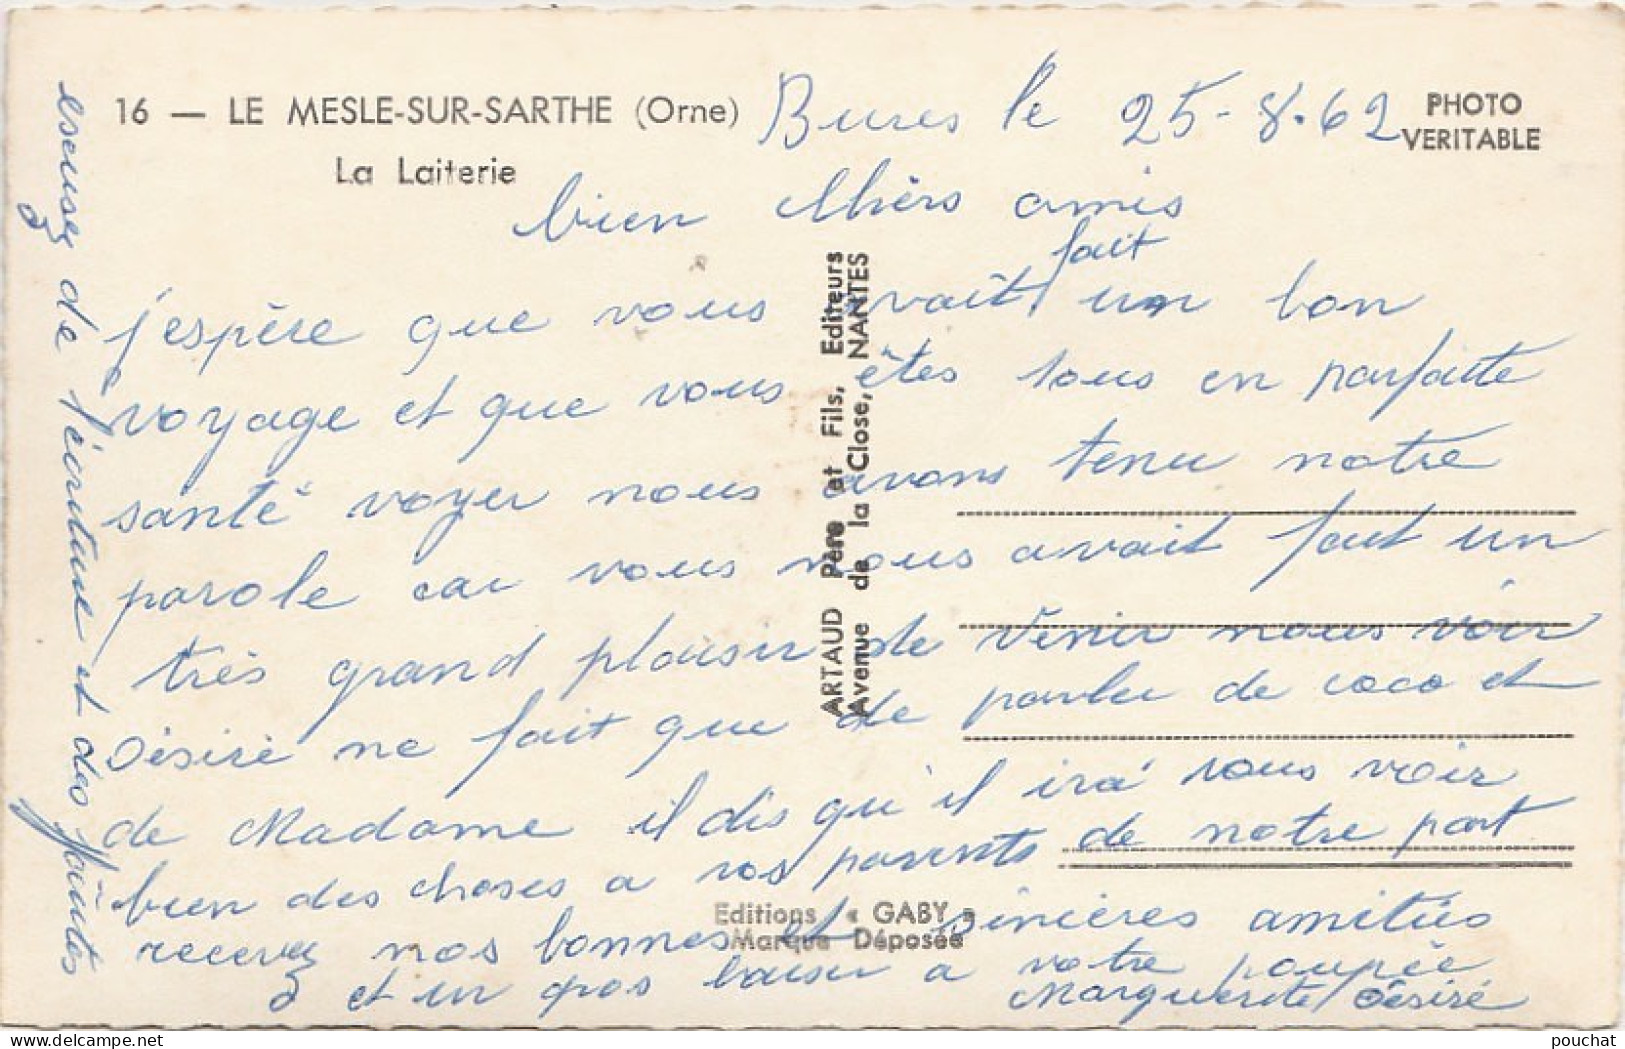 16 — LE MESLE-SUR-SARTHE (Orne)
La Laiterie
PHOTO
VERITABLE
Bures le 25-8.62
bien Chièrs amis
fait
j'espère que vous avait un bon
voyage et que vous êtes tous en parfaite
santé voyer nous avons tenu notre
parole car vous nous avait fait un
très grand plaisir de venir nous voir
Désiré ne fait que de parler de coco et
de Madame il dis qu'il irá vous voir
bien des choses a vos parents de notre part
recevez nos bonnes et sinières amitiés
et un gros baiser a votre poupée
Marguerite Désiré
escusez de l'écriture et des faûtes
ARTAUD Père et Fils, Editeurs
Avenue de la Close, NANTES
Editions « GABY »
Marque Déposée
pouchat
delcampe.net